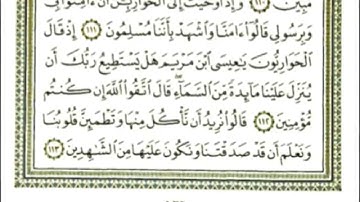 مُّبِينٌ ﴿١١٠﴾ وَإِذْ أَوْحَيْتُ إِلَى ٱلْحَوَارِيِّـۧنَ أَنْ ءَامِنُواْ بِى
وَبِرَسُولِى قَالُوٓاْ ءَامَنَّا وَٱشْهَدْ بِأَنَّنَا مُسْلِمُونَ ﴿١١١﴾ إِذْ قَالَ
ٱلْحَوَارِيُّونَ يَـٰعِيسَى ٱبْنَ مَرْيَمَ هَلْ يَسْتَطِيعُ رَبُّكَ أَن
يُنَزِّلَ عَلَيْنَا مَآئِدَةً مِّنَ ٱلسَّمَآءِ ۖ قَالَ ٱتَّقُواْ ٱللَّهَ إِن كُنتُم
مُّؤْمِنِينَ ﴿١١٢﴾ قَالُواْ نُرِيدُ أَن نَّأْكُلَ مِنْهَا وَتَطْمَئِنَّ قُلُوبُنَا
وَنَعْلَمَ أَن قَدْ صَدَقْتَنَا وَنَكُونَ عَلَيْهَا مِنَ ٱلشَّـٰهِدِينَ ﴿١١٣﴾